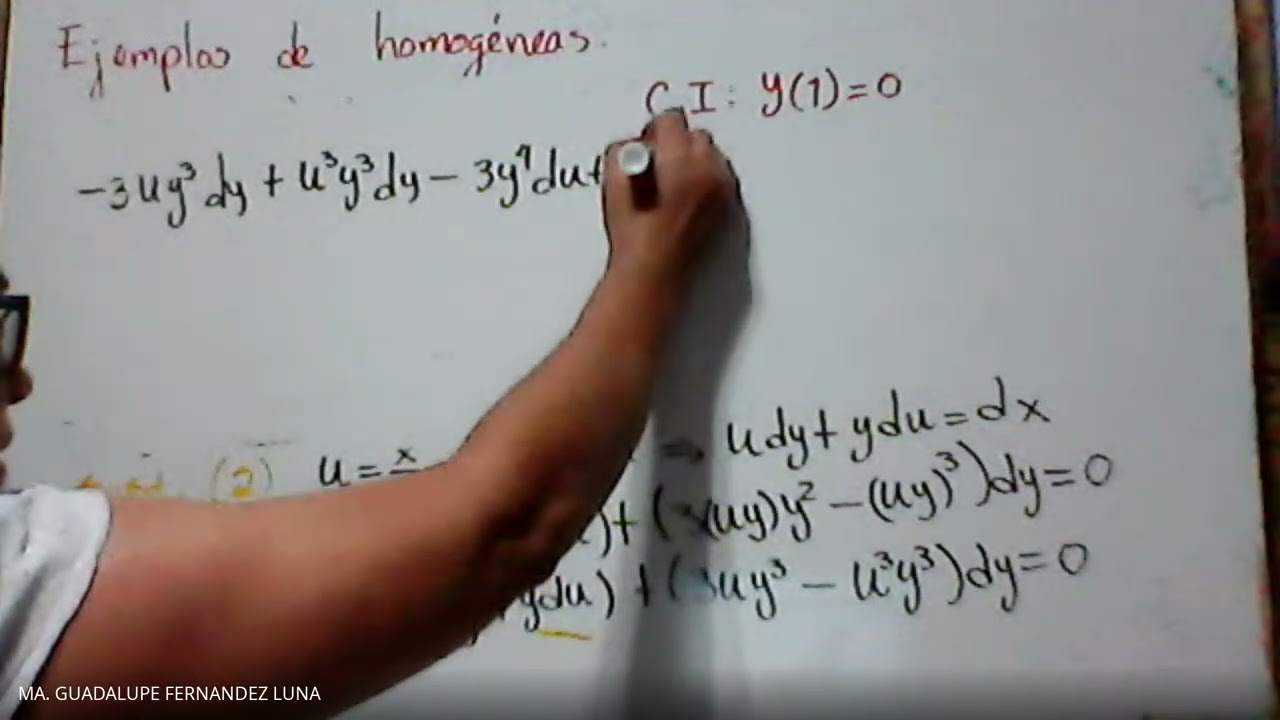 Ejemplos de homogéneas.
C.I: y(1)=0
-3uy³dy + u³y³dy - 3y⁴du+
(2) u = x
⇒ udy + ydu = dx
)+ (3(uy)y² - (uy)³)dy=0
ydu) + (3uy³ - u³y³)dy=0
MA. GUADALUPE FERNANDEZ LUNA